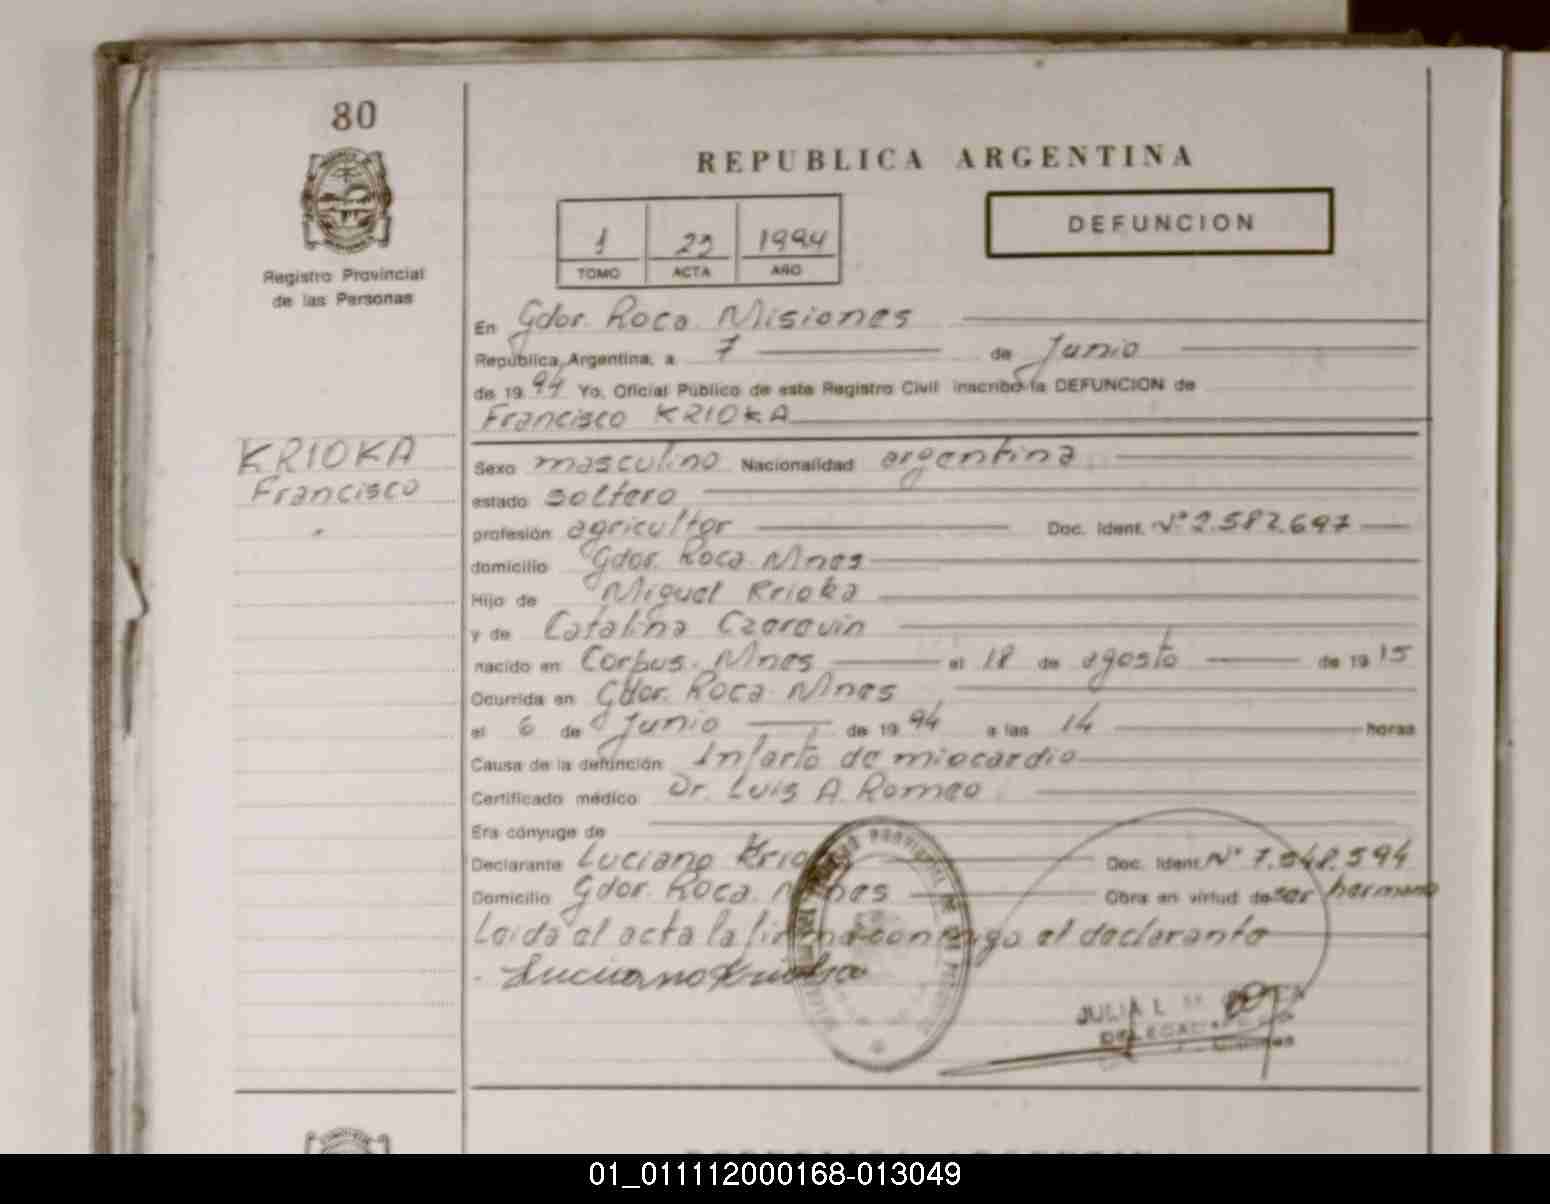 80
REPUBLICA ARGENTINA
DEFUNCION
1 1994
TOMO ACTA AÑO
Registro Provincial
de las Personas
En Gdor. Roca. Misiones
República Argentina, a 7 de Junio
de 19 94 Yo, Oficial Público de este Registro Civil inscribo la DEFUNCION de
Francisco KRIOKA
KRIOKA
Francisco
Sexo masculino Nacionalidad argentina
estado soltero
profesión agricultor Doc. Ident. Nº 2.582.697
domicilio Gdor. Roca. Mnes
Hijo de Miguel Krioka
y de Catalina Czaravin
nacido en Corpus. Mnes el 18 de agosto de 19 15
Ocurrida en Gdor. Roca. Mnes
el 6 de Junio de 19 94 a las 14 horas
Causa de la defunción Infarto de miocardio
Certificado médico Dr. Luis A. Romeo
Era cónyuge de
Declarante Luciano Krioka Doc. Ident. Nº 7.548.594
Domicilio Gdor. Roca. Mnes Obra en virtud de ser hermano
Leida el acta la firma conmigo el declarante
Luciano Krioka
JULIA L.
01_011112000168-013049